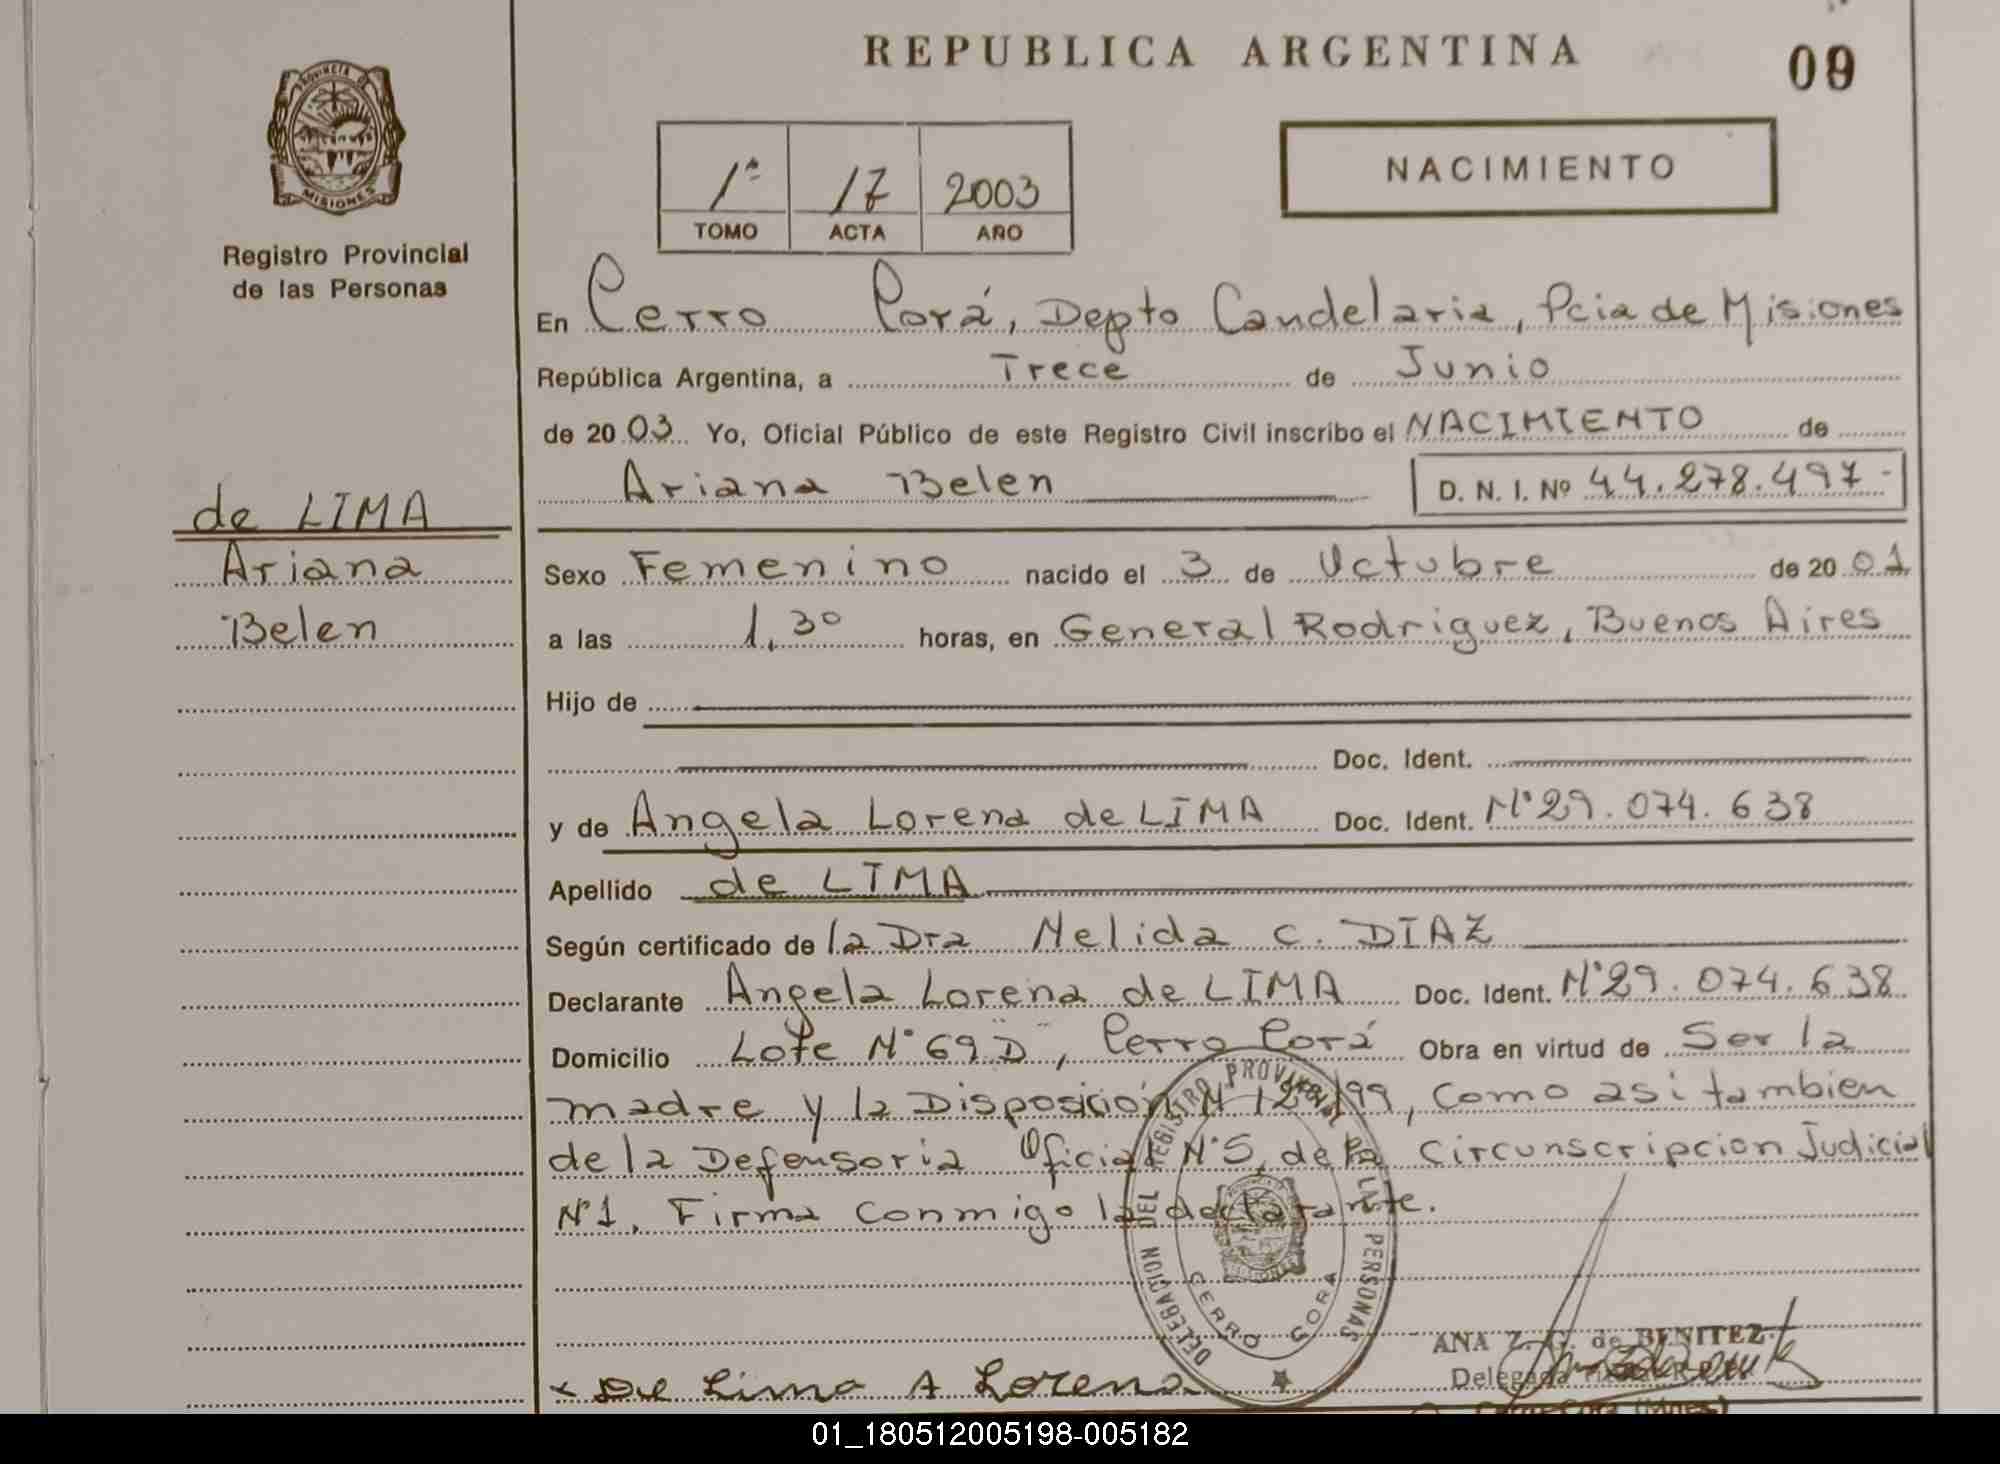 REPUBLICA ARGENTINA
09
PROVINCIA DE
MISIONES
Registro Provincial
de las Personas
1ª 17 2003
TOMO ACTA AÑO
NACIMIENTO
En Cerro Corá, Depto Candelaria, Pcia de Misiones
República Argentina, a Trece de Junio
de 2003 Yo, Oficial Público de este Registro Civil inscribo el NACIMIENTO de
Ariana Belen D. N. I. Nº 44.278.497-
de LIMA
Ariana
Belen
Sexo Femenino nacido el 3 de Octubre de 2001
a las 1,30 horas, en General Rodriguez, Buenos Aires
Hijo de
Doc. Ident.
y de Angela Lorena de LIMA Doc. Ident. N°29.074.638
Apellido de LIMA
Según certificado de la Dra Nelida C. DIAZ
Declarante Angela Lorena de LIMA Doc. Ident. N°29.074.638
Domicilio Lote N° 69 "D", Cerro Corá Obra en virtud de Ser la
madre y la Disposición N° /99, como asi tambien
de la Defensoria Oficial N°5, de la Circunscripcion Judicial
N°1. Firma conmigo la declarante.
DELEGACION DEL REGISTRO PROVINCIAL DE LAS PERSONAS
CERRO CORA
x De Lima A Lorena
ANA Z. G. de BENITEZ
Delegada
Cerro Cora (Mnes)
01_180512005198-005182